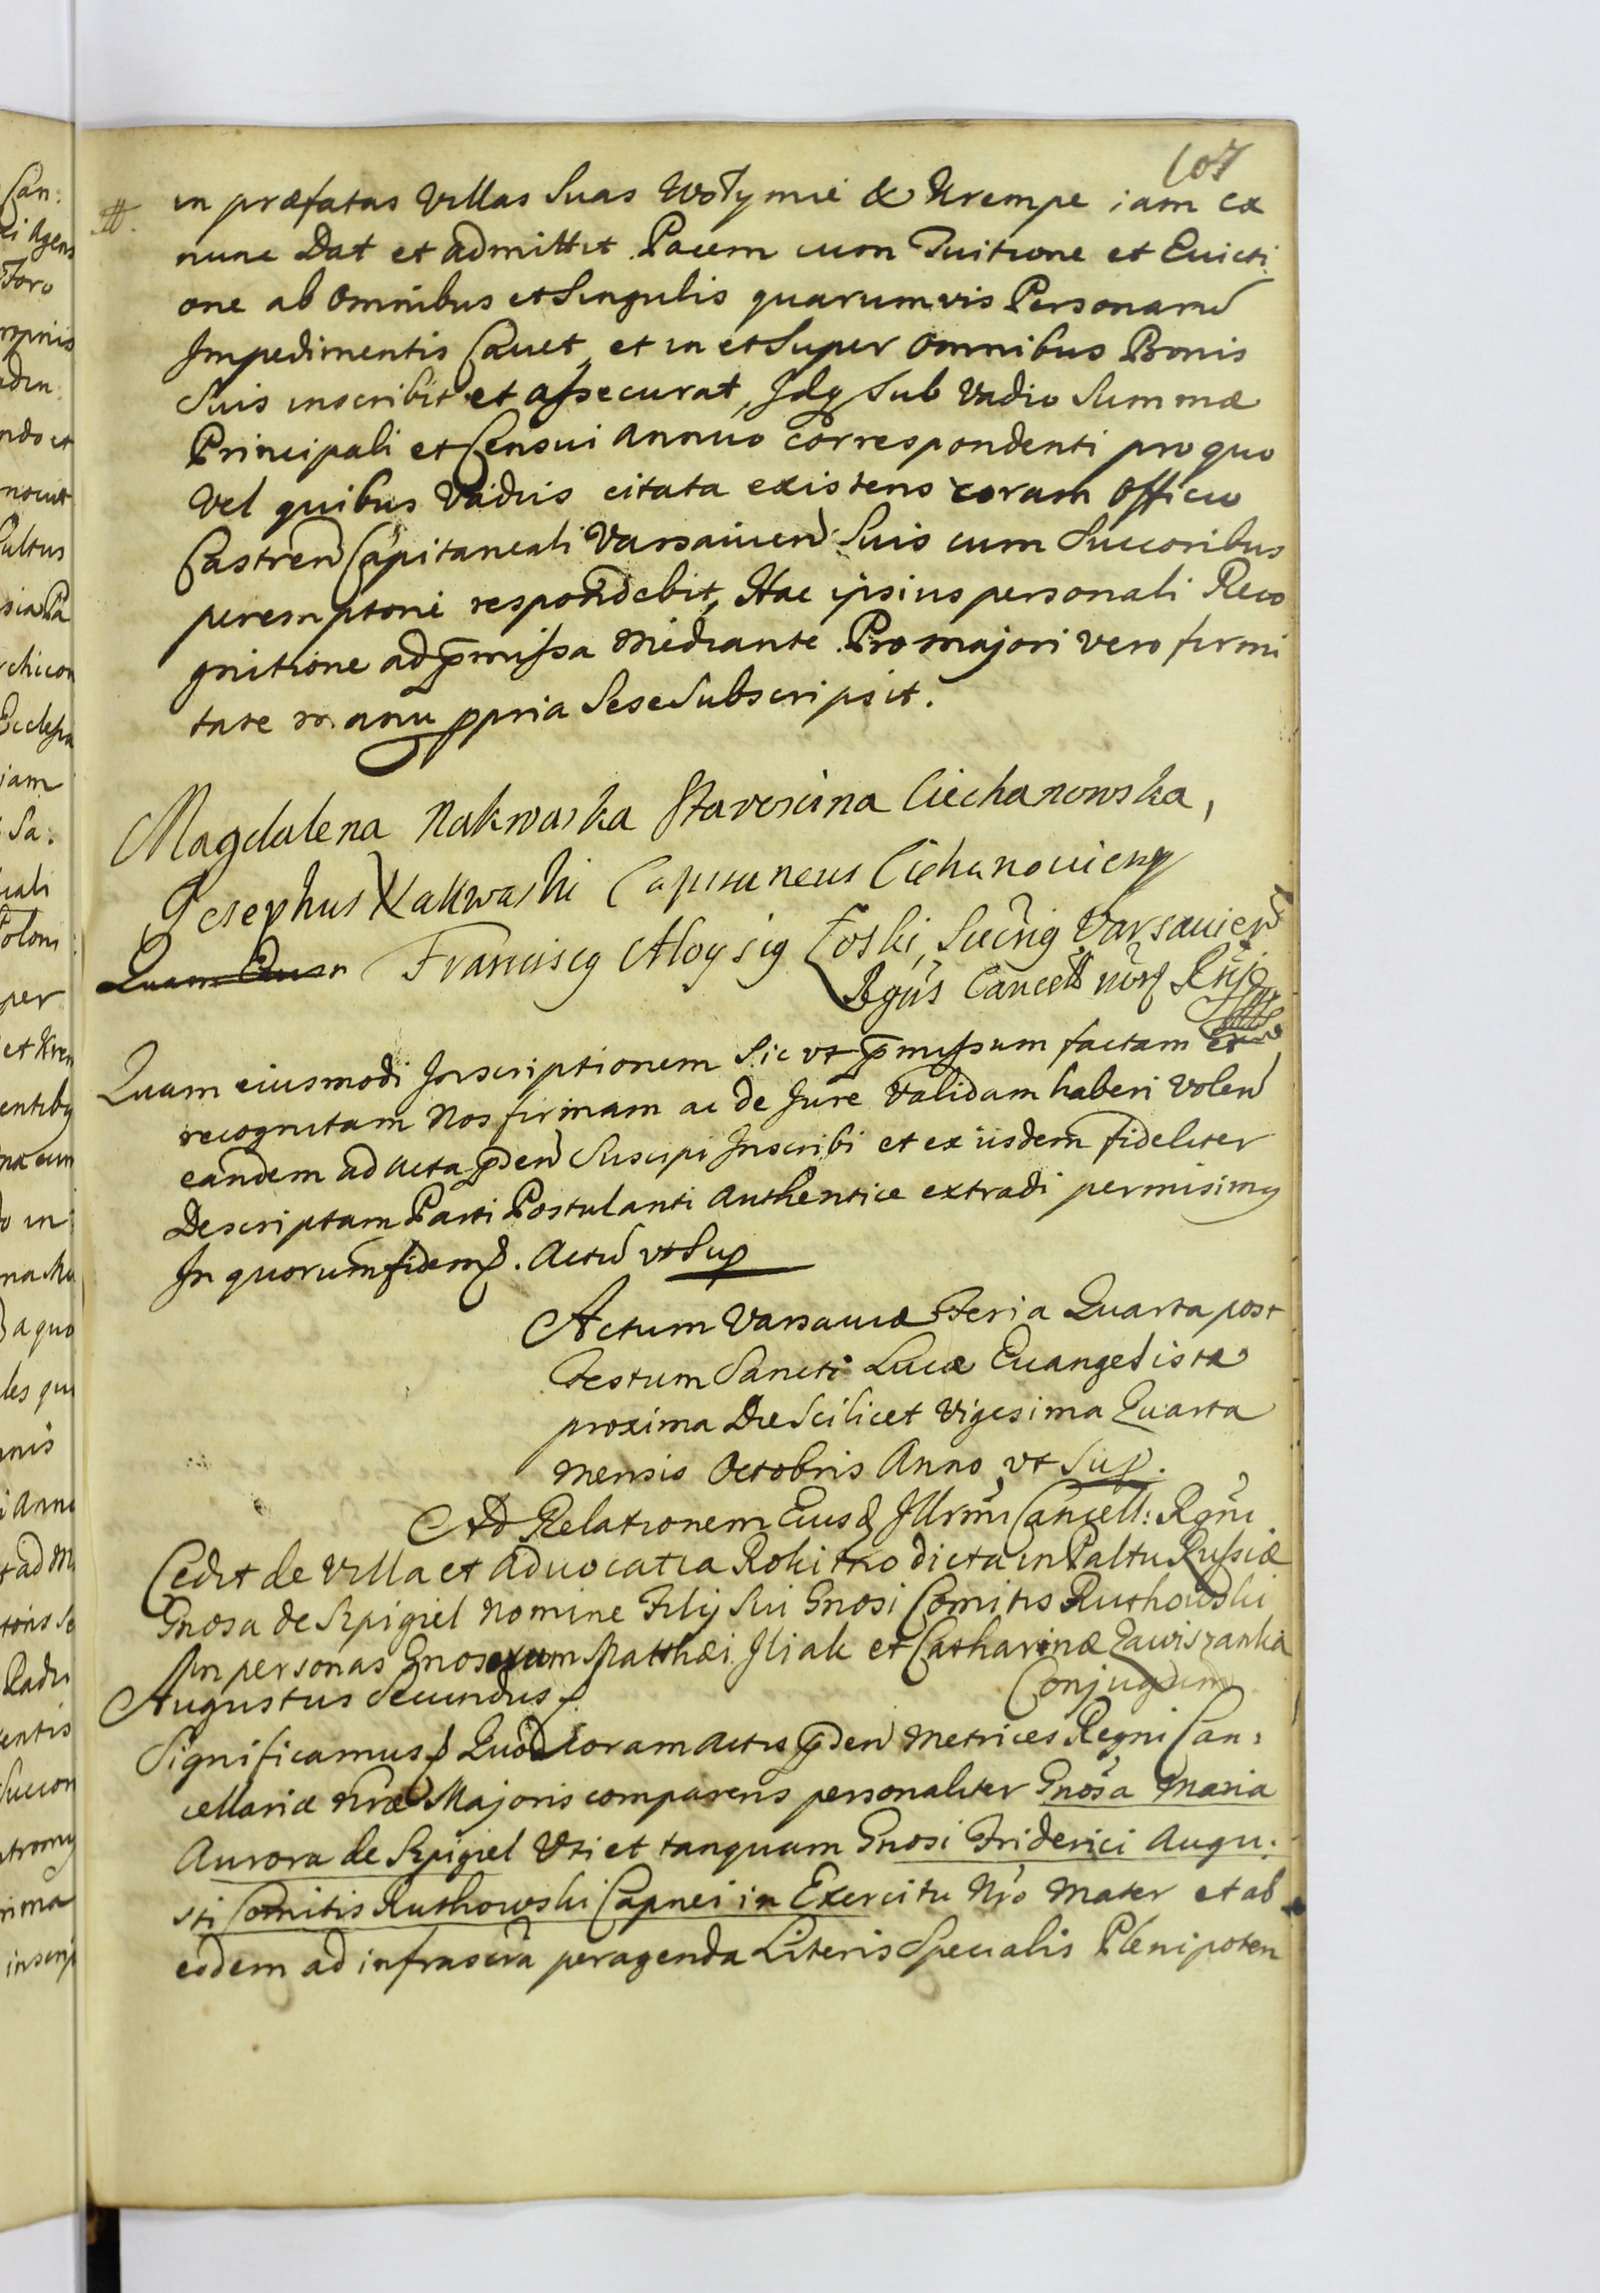 107
in præfatas Villas Suas Wołymie & Krempe iam ex
nunc Dat et admittit. Pacem cum Tuitione et Euicti
one ab omnibus et Singulis quarumvis Personarũ
Impedimentis Cauet, et in et Super omnibus Bonis
Suis inscribit et assecurat, Idq Sub Vadio Summæ
Principali et Censui annuo correspondenti pro quo
Vel quibus Vadiis citata existens coram officio
Castreñ Capitaneali Varsavien Suis cum Succoribus
peremptorie respondebit, Hac ipsius personali Reco
gnitione ad p̄missa mediante. Pro majori vero firmi
tate manu ppria Sese Subscripsit.
Magdalena Nakwaska Starościna Ciechanowska,
Josephus Nakwaski Capitaneus Ciechanouiensq
Franciscq Aloysiq Łoski, Succriq Varsavień
Regũs Cancell
Quam eiusmodi Inscriptionem Sic vt p̄missum factam et
recognitam Nos firmam ac de Jure Validam haberi volen
eandem ad acta p̄den Suscipi Inscribi et ex iisdem fideliter
Descriptam Parti Postulanti authentice extradi permisimq
In quorum fidem. Actũ vt Sup
Actum Varsauiæ Feria Quarta post
Festum Sancti Lucæ Euangelistæ
proxima Die Scilicet Vigesima Quarta
mensis octobris Anno vt Sup.
Ad Relationem Eiusd Illrmi Cancell: Regni
Cedit de Villa et aduocatia Rokitno dicta in Paltu Russiæ
Gnosa de Szpigiel nomine Filij Sui Gnosi Comitis Ruthowski
In personas Gnosorum Matthæi Iliak et Catharinæ Zawiszanka
Conjugum
Augustus Secundus
Significamus Quod coram actis p̄den metrices Regni Can:
cellariæ nræ Majoris comparens personaliter Gnosa Maria
Aurora de Szpigiel Vti et tanquam Gnosi Friderici Augu:
sti Comitis Ruthowski Capnei in Exercitu Nro mater et ab
eodem ad infrascra peragenda Literis Specialis Plenipoten